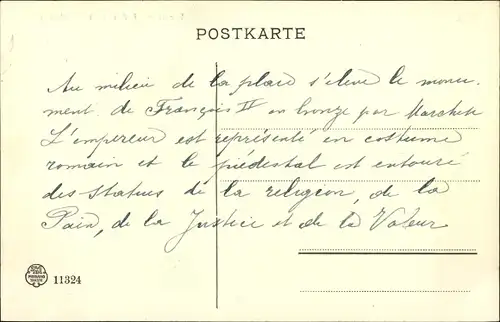 POSTKARTE
Au milieu de la place s'élève le monu-
ment de François II en bronze par Marchesi
L'empereur est représenté en costume
romain et le piédestal est entouré
des statues de la religion, de la
Paix, de la Justice et de la Valeur
11324